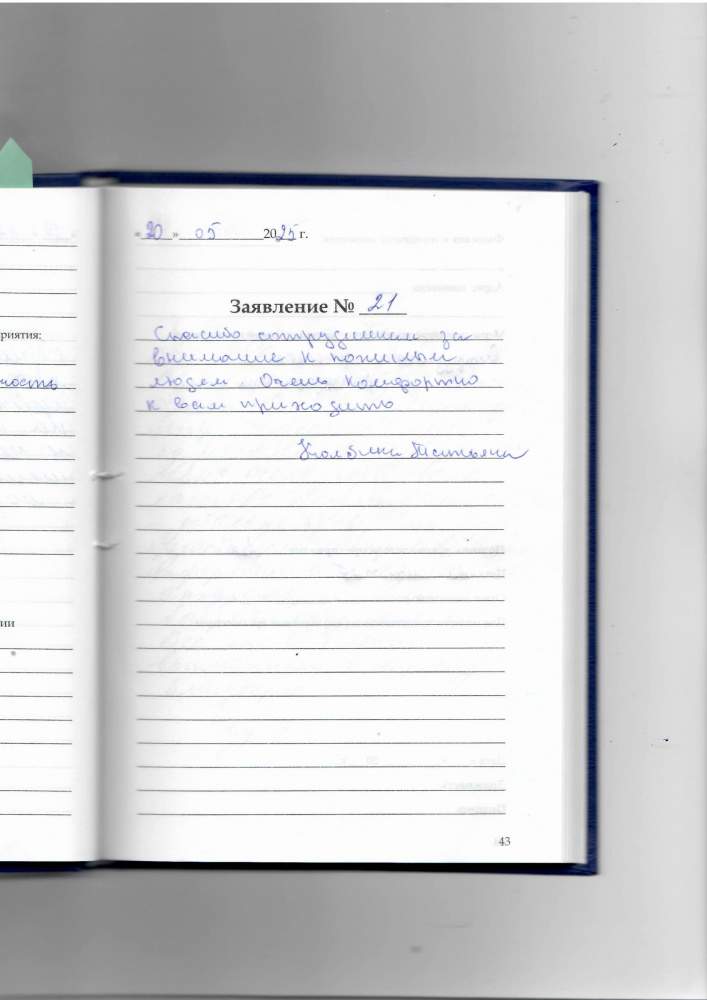 «20» 05 2025 г.
Заявление № 21
Спасибо сотрудникам за
внимание к пожилым
людям. Очень комфортно
к вам приходить
Татьяна
риятия:
ность
ии
43